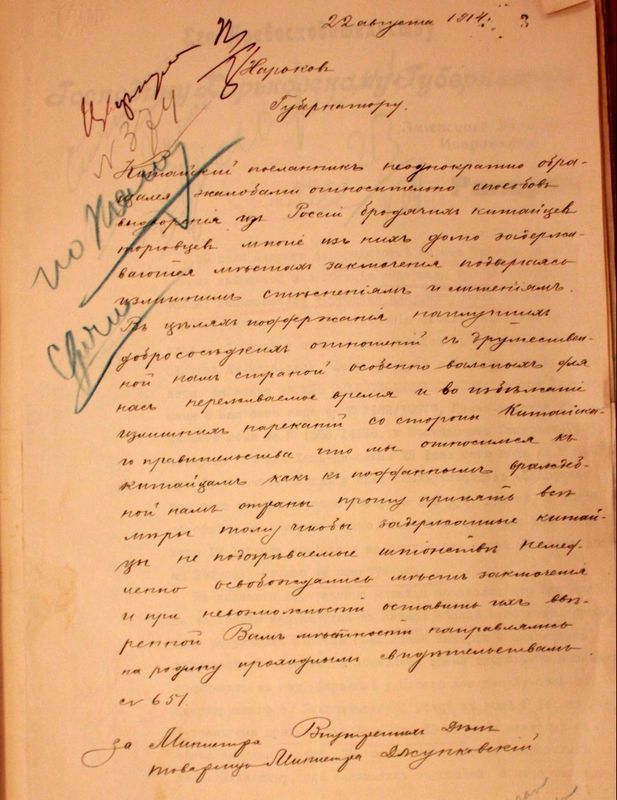 22 августа 1914. 3
Циркуляр
N 374
Харьков
Губернатору.
Китайский посланникъ неоднократно обра-
щался жалобами относительно способовъ
выдворенія изъ Россіи бродячихъ китайцевъ
торговцевъ многіе изъ нихъ долго задержи-
ваются мѣстахъ заключенія подвергаясь
излишнимъ стѣсненіямъ и лишеніямъ.
Въ цѣляхъ поддержанія наилучшихъ
добрососѣдскихъ отношеній съ дружествен-
ной намъ страной особенно важныхъ для
насъ переживаемое время и во избѣжаніе
излишнихъ нареканій со стороны Китайска-
го правительства что мы относимся къ
китайцамъ какъ къ подданнымъ враждеб-
ной намъ страны прошу принять всѣ
мѣры тому чтобы задержанные китай-
цы не подозрѣваемые шпіонствѣ немед-
ленно освобождались мѣстъ заключенія
и при невозможности оставить ихъ ввѣ-
ренной Вамъ мѣстности направлялись
на родину проходными свидѣтельствами
№ 651.
за Министра Внутреннихъ Дѣлъ
товарищъ Министра Джунковскій